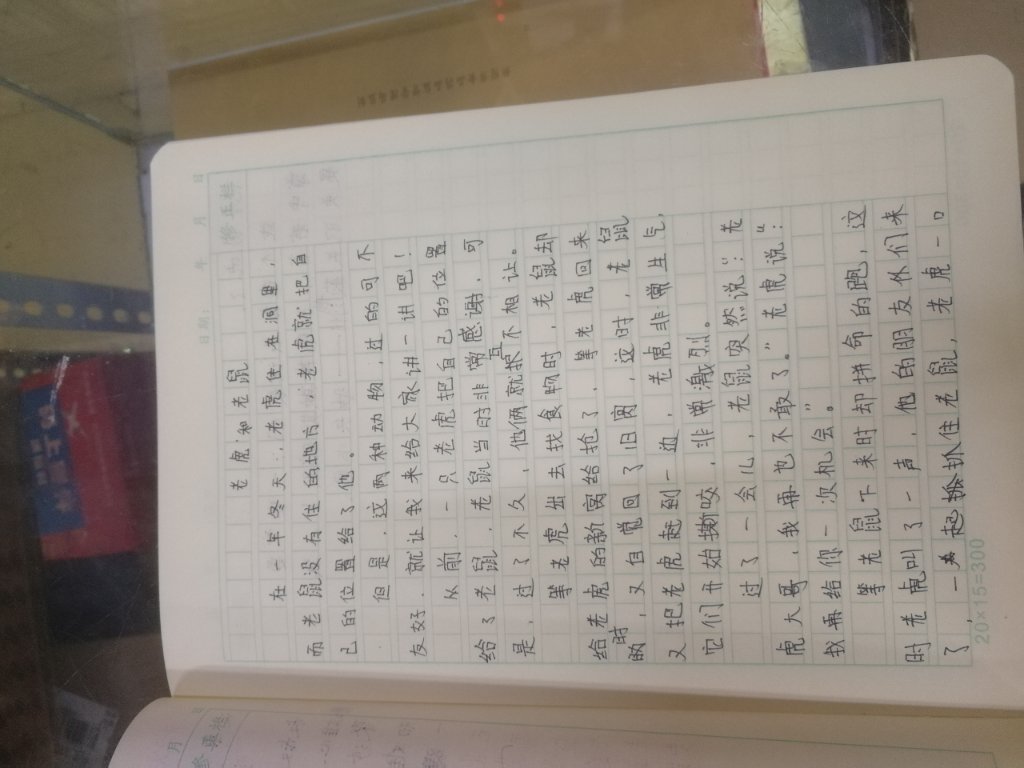 日期: 年 月 日
老虎和老鼠
在一年冬天,老虎住在洞里,
而老鼠没有住的地方,老虎就把自
己的位置给了他。
但是,这两种动物,过的可不
友好。就让我来给大家讲一讲吧!
从前,一只老虎把自己的位置
给了老鼠,老鼠当时非常感谢,可
是,过了不久,他俩就互不相让。
等老虎出去找食物时,老鼠却
给老虎的新窝给抢了,等老虎回来
时,又自觉回了旧窝,这时,老鼠
又把老虎赶到一边,老虎非常生气,
它们开始撕咬,非常激烈。
过了一会儿,老鼠突然说:“老
虎大哥,我再也不敢了。”老虎说:“
我再给你一次机会。”
等老鼠下来时却拼命的跑,这
时老虎叫了一声,他的朋友外们来
了,一起抓住老鼠,老虎一口
20×15=300